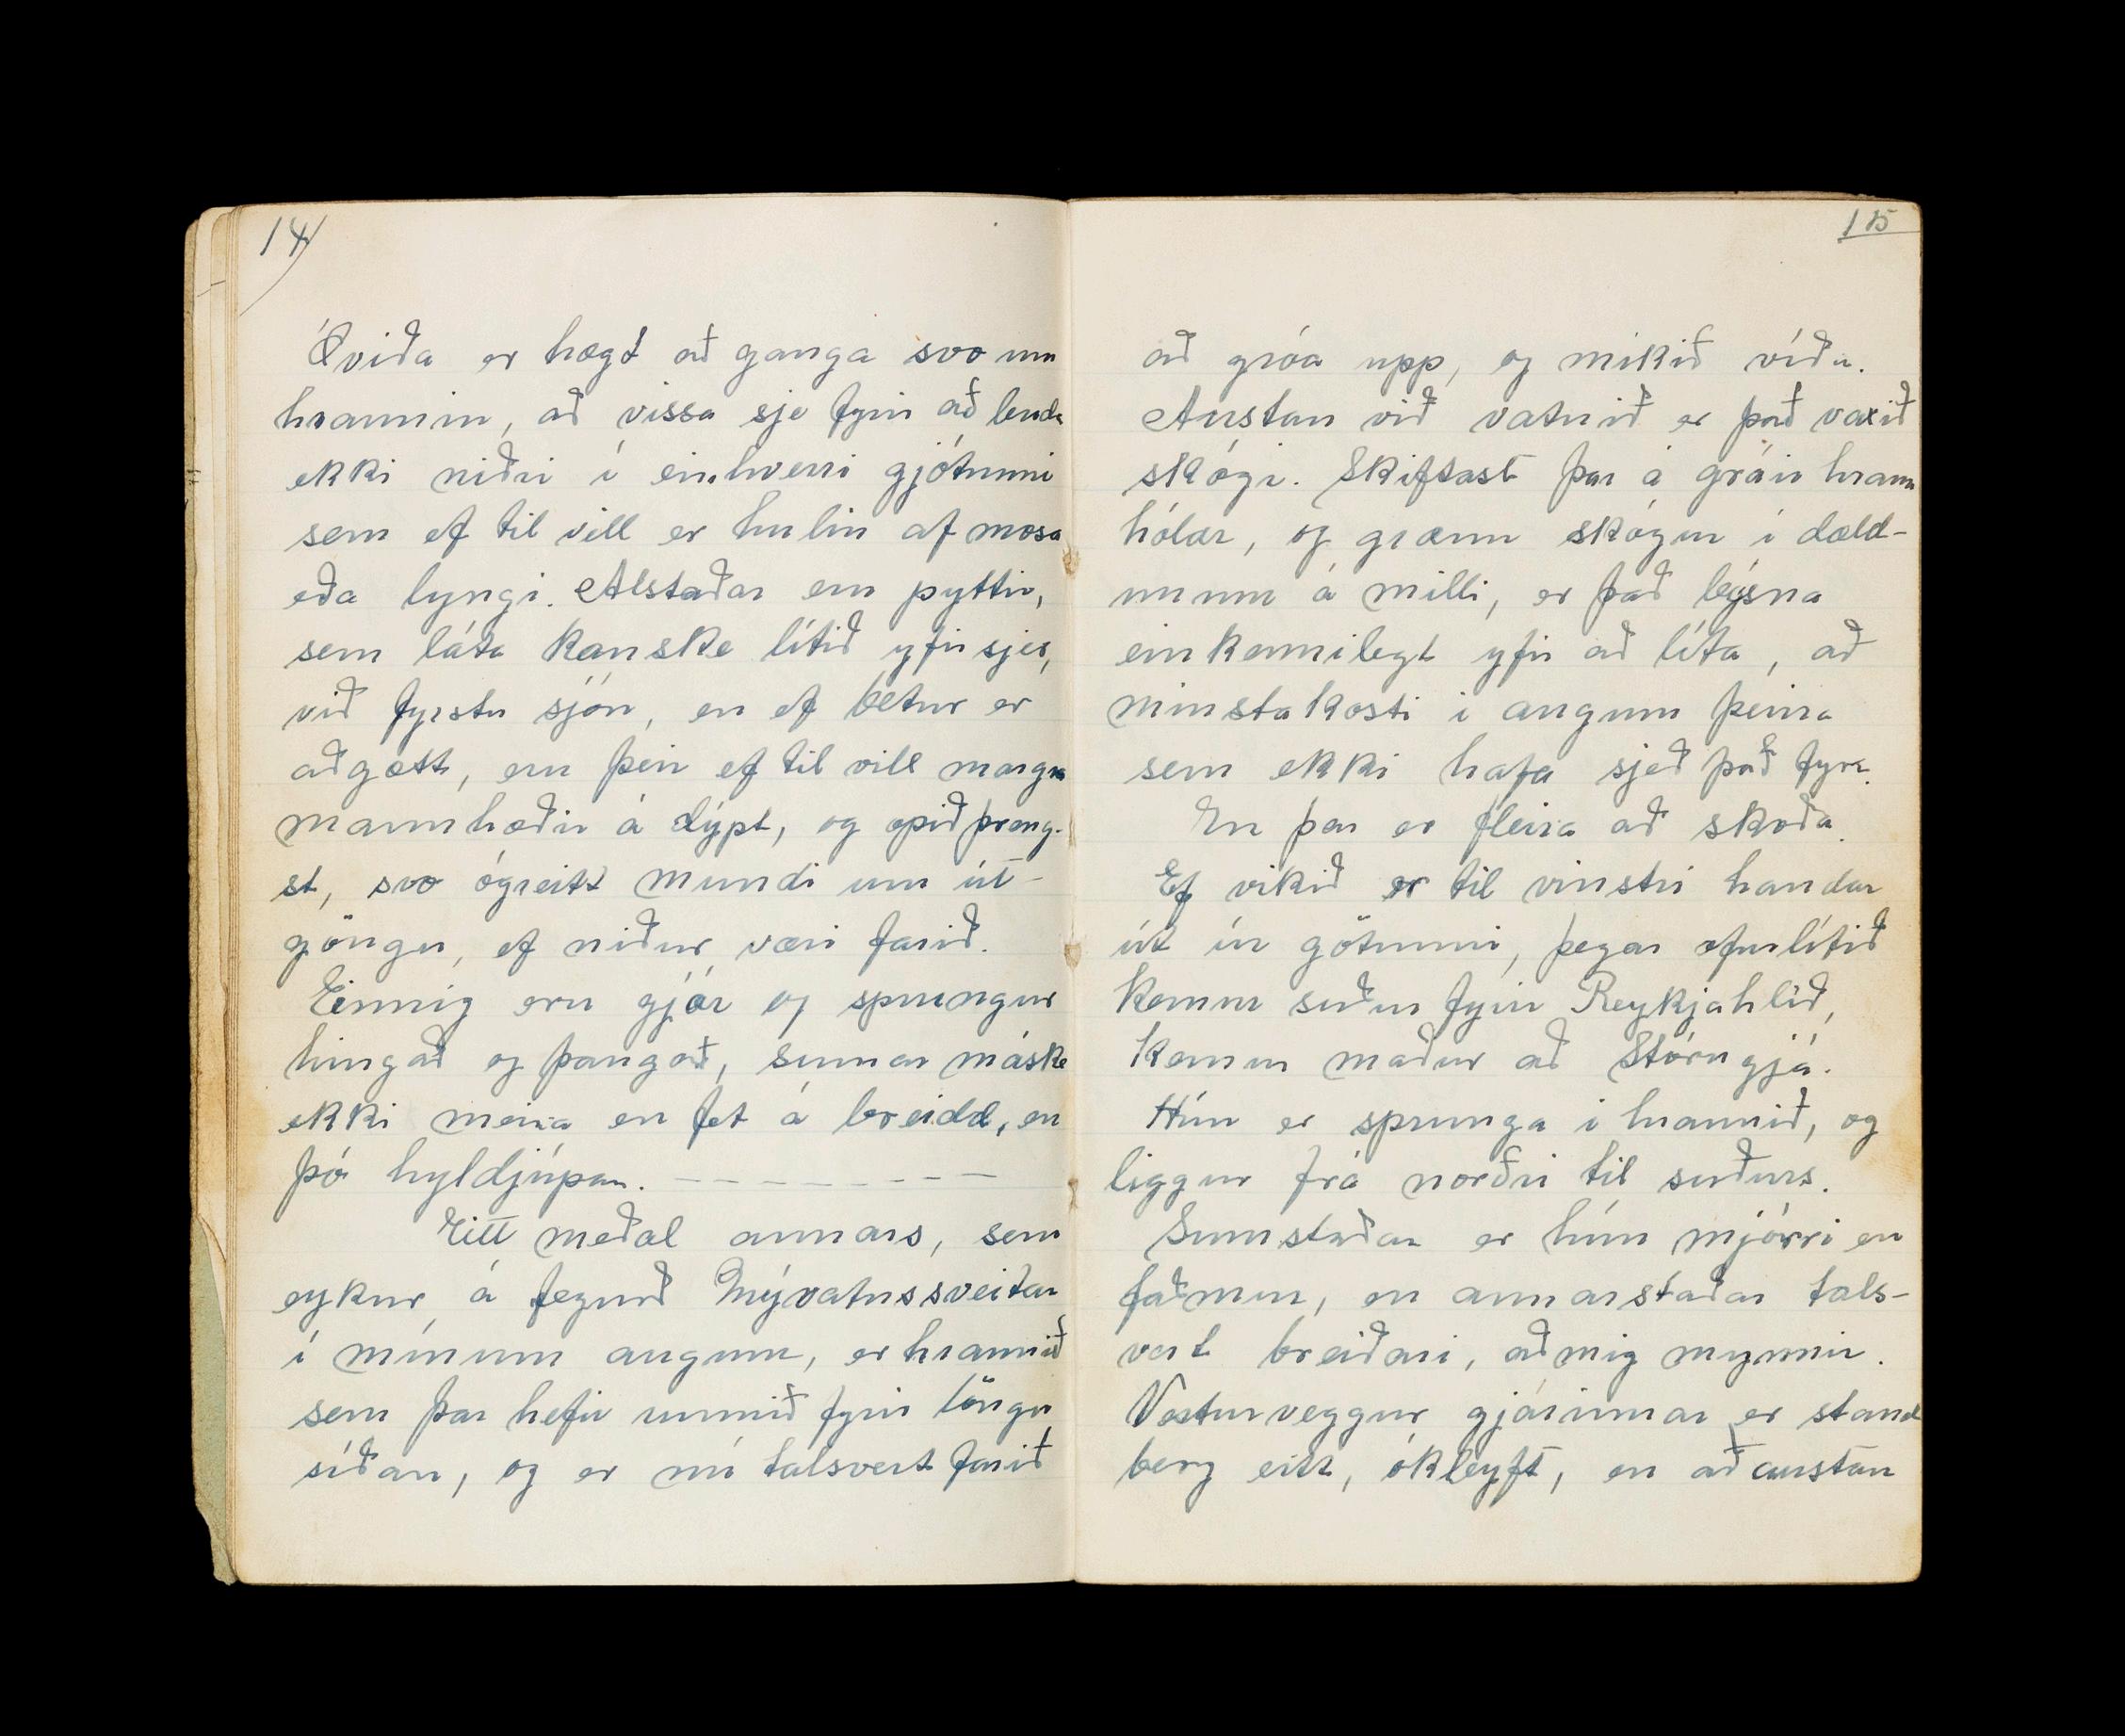 14)
Óviða er hægt að ganga svo um
hraunin, að vissa sje fyrir að lenda
ekki niðri í einhverri gjótunni
sem ef til vill er hulin af mosa
eða lyngi. Alstaðar eru pyttir,
sem láta kanske lítið yfir sjer,
við fyrstu sjón, en ef betur er
aðgætt, eru þeir ef til vill margra
mannhæðir á dýpt, og opið þreng-
st, svo ógreitt mundi um út-
göngu, ef niður væri farið.
Einnig eru gjár og sprungur
hingað og þangað, sumar máske
ekki meira en fet á breidd, en
þó hyldjúpar. — — — — — — — —
Eitt meðal annars, sem
eykur á fegurð Mývatnssveitar
í mínum augum, er hraunið
sem þar hefir runnið fyrir löngu
síðan, og er nú talsvert farið
15
að gróa upp, og mikið víða.
Austan við vatnið er það vaxið
skógi. Skiftast þar á gráir hraun
hólar, og grænn skógur í dæld-
unum á milli, er það leýsna
einkennilegt yfir að líta, að
minstakosti í augum þeirra
sem ekki hafa sjeð það fyr.
En þar er fleira að skoða.
Ef vikið er til vinstri handar
út úr götunni, þegar ofurlítið
kemur suður fyrir Reykjahlíð,
kemur maður að Stórugjá.
Hún er sprunga í hraunið, og
liggur frá norðri til suðurs.
Sumstaðar er hún mjórri en
faðmur, en annarstaðar tals-
vert breiðari, að mig mynnir.
Vesturveggur gjárinnar er stand
berg eitt, ókleyft, en að austan